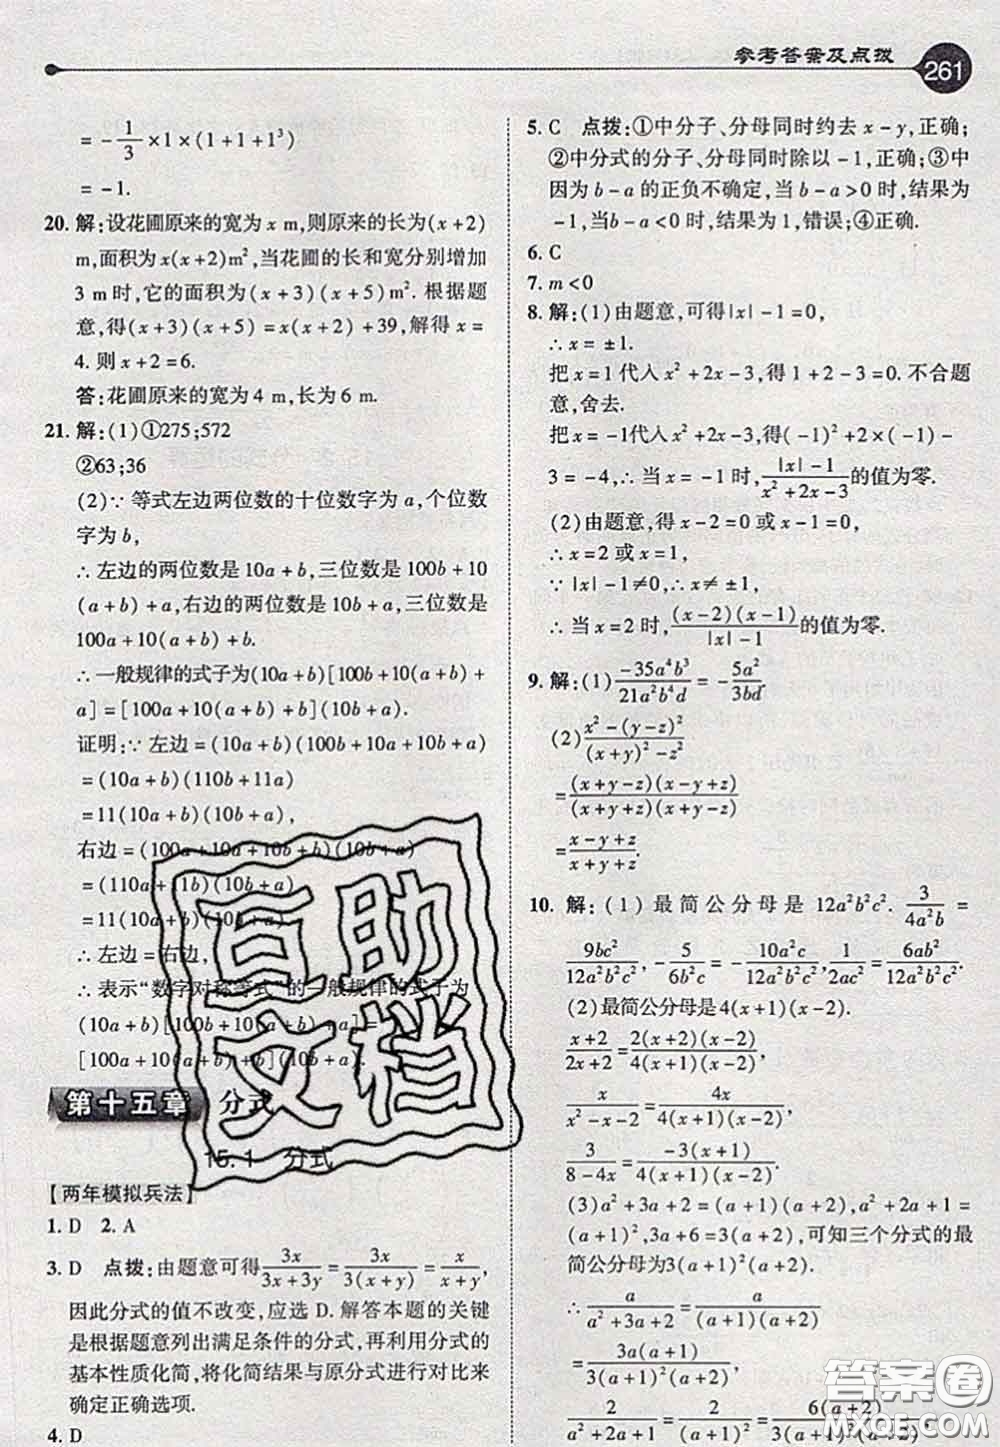 参考答案及点拨
261
= -1/3 ×1×(1+1+1³)
= -1.
20. 解:设花圃原来的宽为 x m,则原来的长为(x+2)
m,面积为 x(x+2)m²,当花圃的长和宽分别增加
3 m 时,它的面积为(x+3)(x+5)m². 根据题
意,得(x+3)(x+5)=x(x+2)+39,解得 x=
4. 则 x+2=6.
答:花圃原来的宽为 4 m,长为 6 m.
21. 解:(1)①275;572
②63;36
(2)∵ 等式左边两位数的十位数字为 a,个位数
字为 b,
∴ 左边的两位数是 10a+b,三位数是 100b+10
(a+b)+a,右边的两位数是 10b+a,三位数是
100a+10(a+b)+b.
∴ 一般规律的式子为(10a+b)[100b+10(a+b)+
a]=[100a+10(a+b)+b](10b+a).
证明:∵ 左边=(10a+b)(100b+10a+10b+a)
=(10a+b)(110b+11a)
=11(10a+b)(10b+a),
右边=(100a+10a+10b+b)(10b+a)
=(110a+11b)(10b+a)
=11(10a+b)(10b+a),
∴ 左边=右边,
∴ 表示“数字对称等式”的一般规律的式子为
(10a+b)[100b+10(a+b)+a]=
[100a+10(a+b)+b](10b+a).
第十五章 分式
15.1 分式
【两年模拟兵法】
1. D 2. A
3. D 点拨:由题意可得 3x/(3x+3y) = 3x/(3(x+y)) = x/(x+y),
因此分式的值不改变,应选 D. 解答本题的关键
是根据题意列出满足条件的分式,再利用分式的
基本性质化简,将化简结果与原分式进行对比来
确定正确选项.
4. D
5. C 点拨:①中分子、分母同时约去 x-y,正确;
②中分式的分子、分母同时除以 -1,正确;③中
因为 b-a 的正负不确定,当 b-a>0 时,结果为
-1,当 b-a<0 时,结果为 1,错误;④正确.
6. C
7. m<0
8. 解:(1)由题意,可得|x|-1=0,
∴ x=±1.
把 x=1代入 x²+2x-3,得 1+2-3=0. 不合题
意,舍去.
把 x=-1代入 x²+2x-3,得(-1)²+2×(-1)-
3=-4,∴ 当 x=-1 时,(|x|-1)/(x²+2x-3)的值为零.
(2)由题意,得 x-2=0 或 x-1=0,
∴ x=2 或 x=1.
∵ |x|-1≠0,∴ x≠±1,
∴ 当 x=2 时,(x-2)(x-1)/(|x|-1)的值为零.
9. 解:(1) -35a⁴b³/(21a²b⁴d) = -5a²/(3bd).
(2) (x²-(y-z)²)/((x+y)²-z²)
= (x+y-z)(x-y+z)/((x+y+z)(x+y-z))
= (x-y+z)/(x+y+z).
10. 解:(1)最简公分母是 12a²b²c². 3/(4a²b) =
9bc²/(12a²b²c²), -5/(6b²c) = -10a²c/(12a²b²c²), 1/(2ac²) = 6ab²/(12a²b²c²).
(2)最简公分母是 4(x+1)(x-2).
(x+2)/(2x+2) = 2(x+2)(x-2)/(4(x+1)(x-2)),
x/(x²-x-2) = 4x/(4(x+1)(x-2)),
3/(8-4x) = -3(x+1)/(4(x+1)(x-2)).
(3)a²+3a+2=(a+1)(a+2),a²+2a+1=
(a+1)²,3a+6=3(a+2),可知三个分式的最
简公分母为3(a+1)²(a+2).
∴ a/(a²+3a+2) = a/((a+1)(a+2))
= 3a(a+1)/(3(a+1)²(a+2)),
2/(a²+2a+1) = 2/(a+1)² = 6(a+2)/(3(a+1)²(a+2)),
互助
文档
答案圈
MXQE.COM